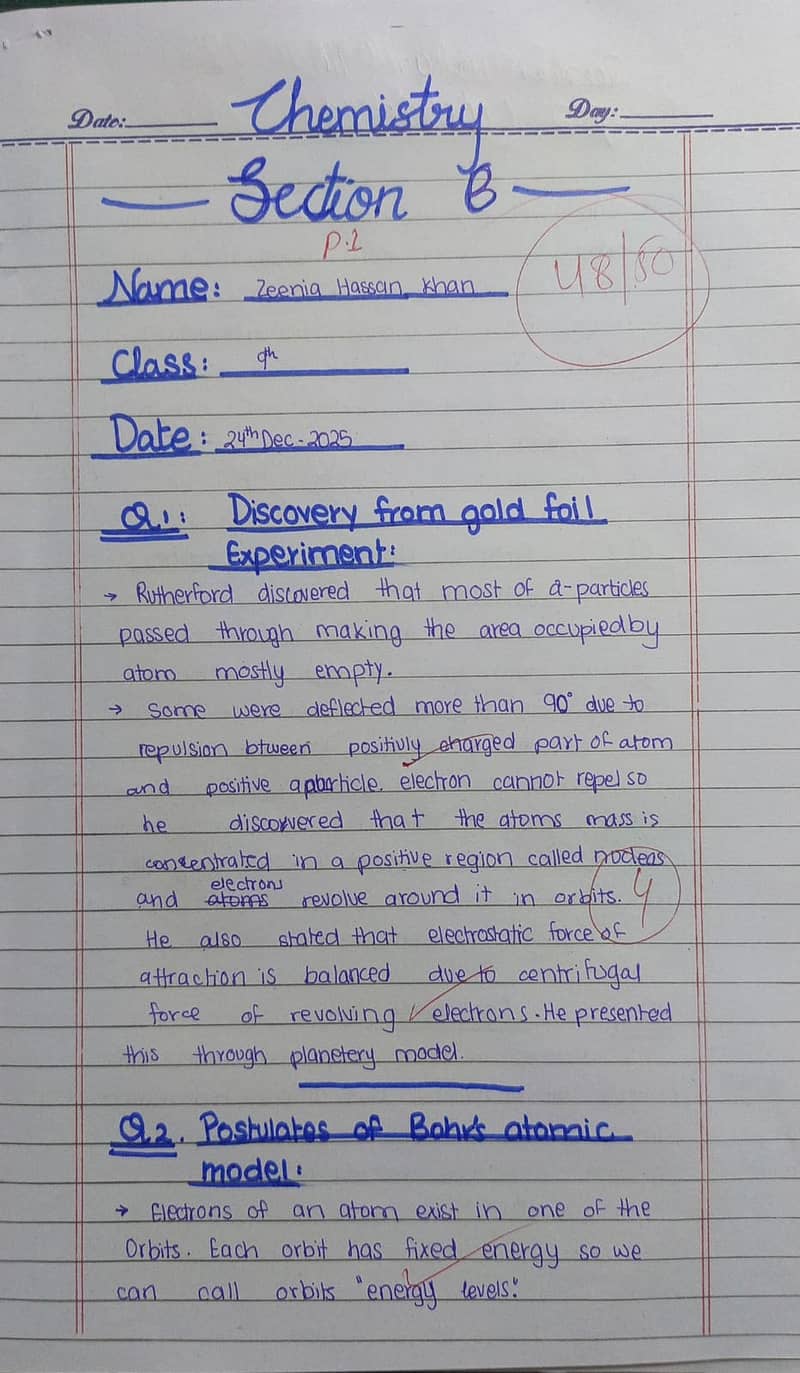 Date:
Chemistry
Day:
Section B
P.1
48/50
Name: Zeenia Hassan Khan
Class: 9th
Date: 24th Dec - 2025
Q1: Discovery from gold foil
Experiment:
→ Rutherford discovered that most of a-particles
passed through making the area occupied by
atom mostly empty.
→ Some were deflected more than 90° due to
repulsion btween positivly charged part of atom
and positive aparticle. electron cannot repel so
he discovered that the atoms mass is
concentrated in a positive region called nocleas
electrons
and atoms revolve around it in orbits.
4
He also stated that electrostatic force of
attraction is balanced due to centrifugal
force of revolving electrons. He presented
this through planetery model.
Q2. Postulates of Bohr's atomic
model:
→ Electrons of an atom exist in one of the
Orbits. Each orbit has fixed energy so we
can call orbits "energy levels."